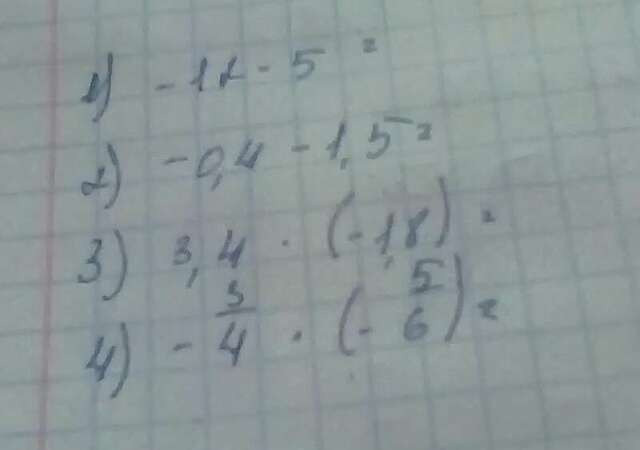 1) -12 - 5 =
2) -0,4 - 1,5 =
3) 3,4 · (-1,8) =
4) - 3/4 · (- 5/6) =